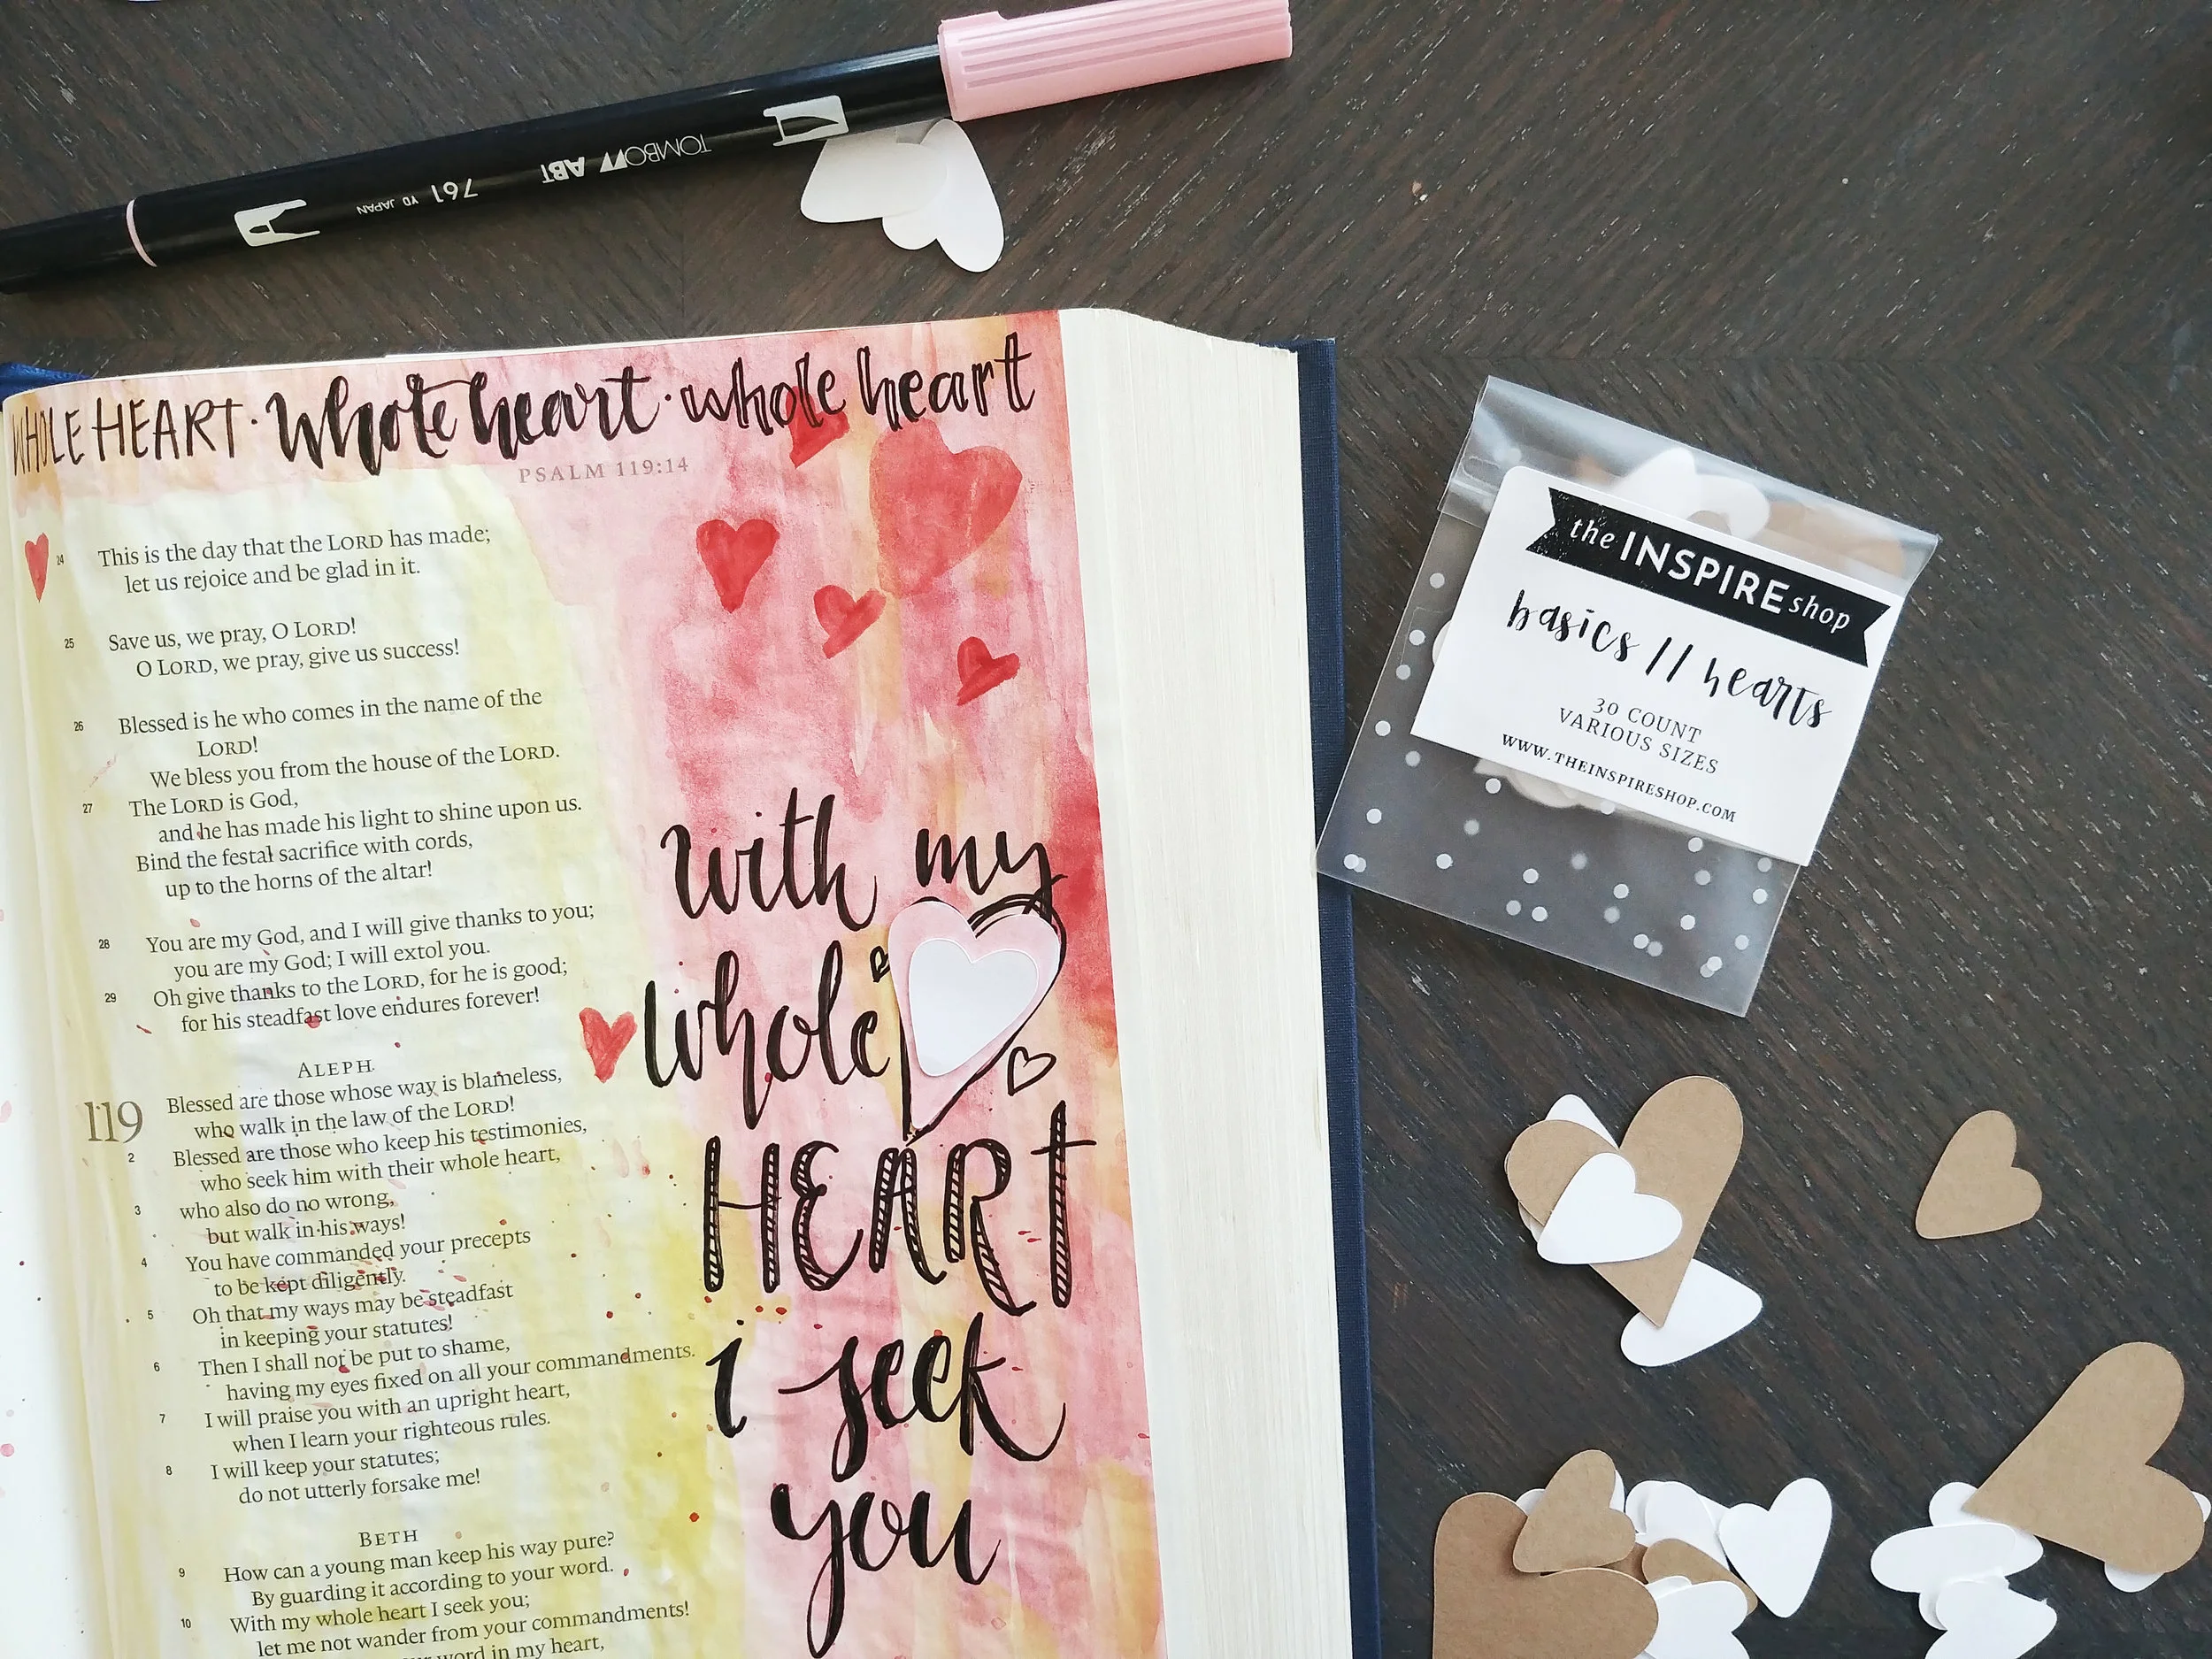 TOMBOW ABT
761 YO JAPAN
WHOLE HEART · whole heart · whole heart
PSALM 119:14
24 This is the day that the LORD has made;
let us rejoice and be glad in it.
25 Save us, we pray, O LORD!
O LORD, we pray, give us success!
26 Blessed is he who comes in the name of the
LORD!
We bless you from the house of the LORD.
27 The LORD is God,
and he has made his light to shine upon us.
Bind the festal sacrifice with cords,
up to the horns of the altar!
28 You are my God, and I will give thanks to you;
you are my God; I will extol you.
29 Oh give thanks to the LORD, for he is good;
for his steadfast love endures forever!
ALEPH
119 Blessed are those whose way is blameless,
who walk in the law of the LORD!
2 Blessed are those who keep his testimonies,
who seek him with their whole heart,
3 who also do no wrong,
but walk in his ways!
4 You have commanded your precepts
to be kept diligently.
5 Oh that my ways may be steadfast
in keeping your statutes!
6 Then I shall not be put to shame,
having my eyes fixed on all your commandments.
7 I will praise you with an upright heart,
when I learn your righteous rules.
8 I will keep your statutes;
do not utterly forsake me!
BETH
9 How can a young man keep his way pure?
By guarding it according to your word.
10 With my whole heart I seek you;
let me not wander from your commandments!
word in my heart,
with my
whole
HEART
i seek
you
the INSPIRE shop
basics // hearts
30 COUNT
VARIOUS SIZES
WWW.THEINSPIRESHOP.COM